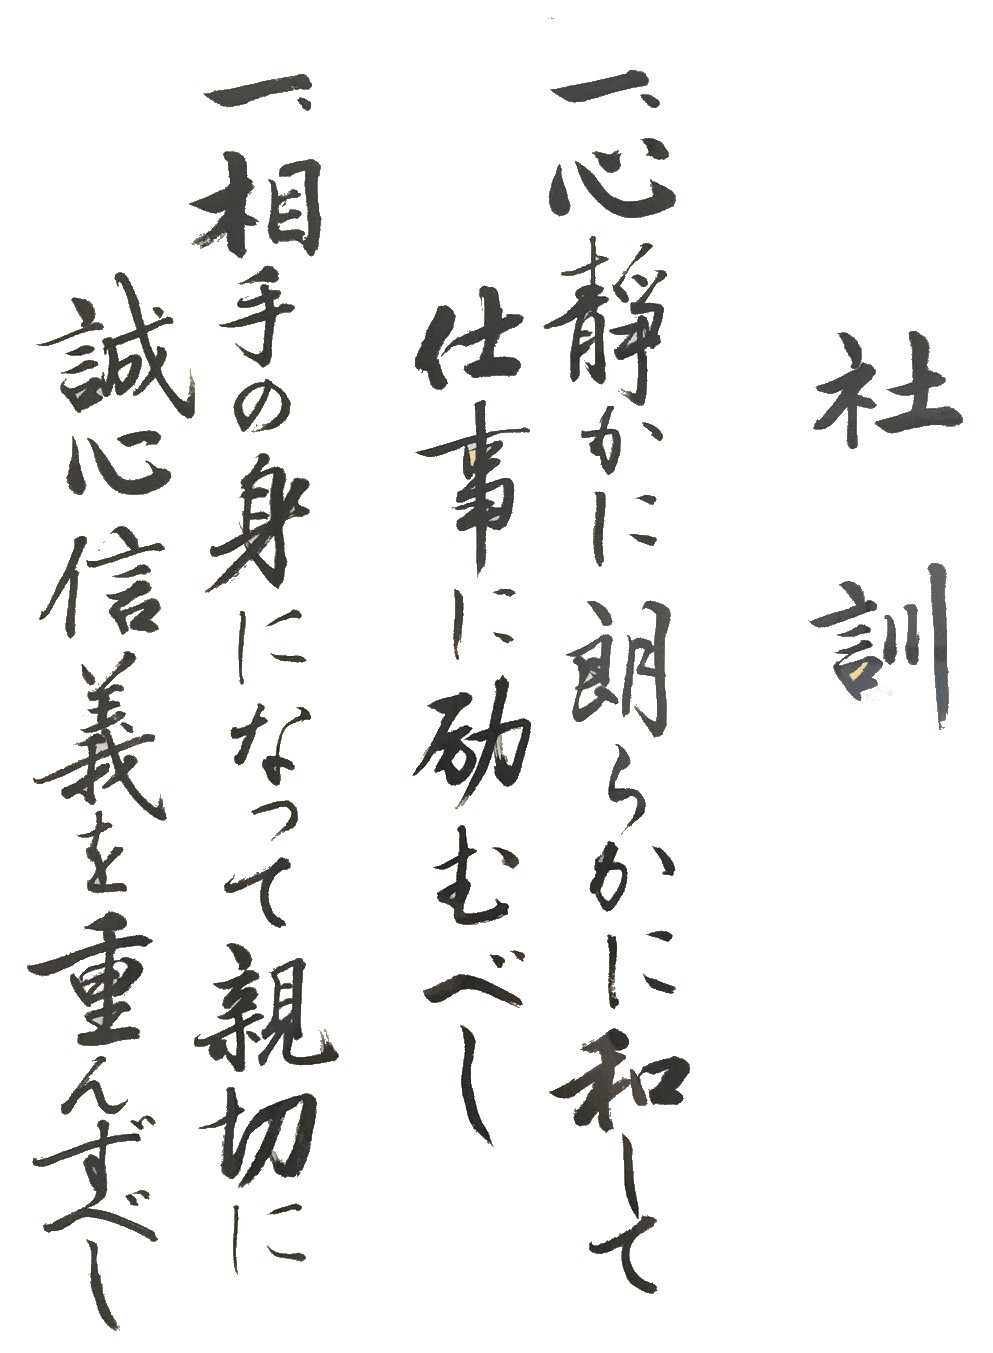 社訓
一、心静かに朗らかに和して
仕事に励むべし
一、相手の身になって親切に
誠心信義を重んずべし